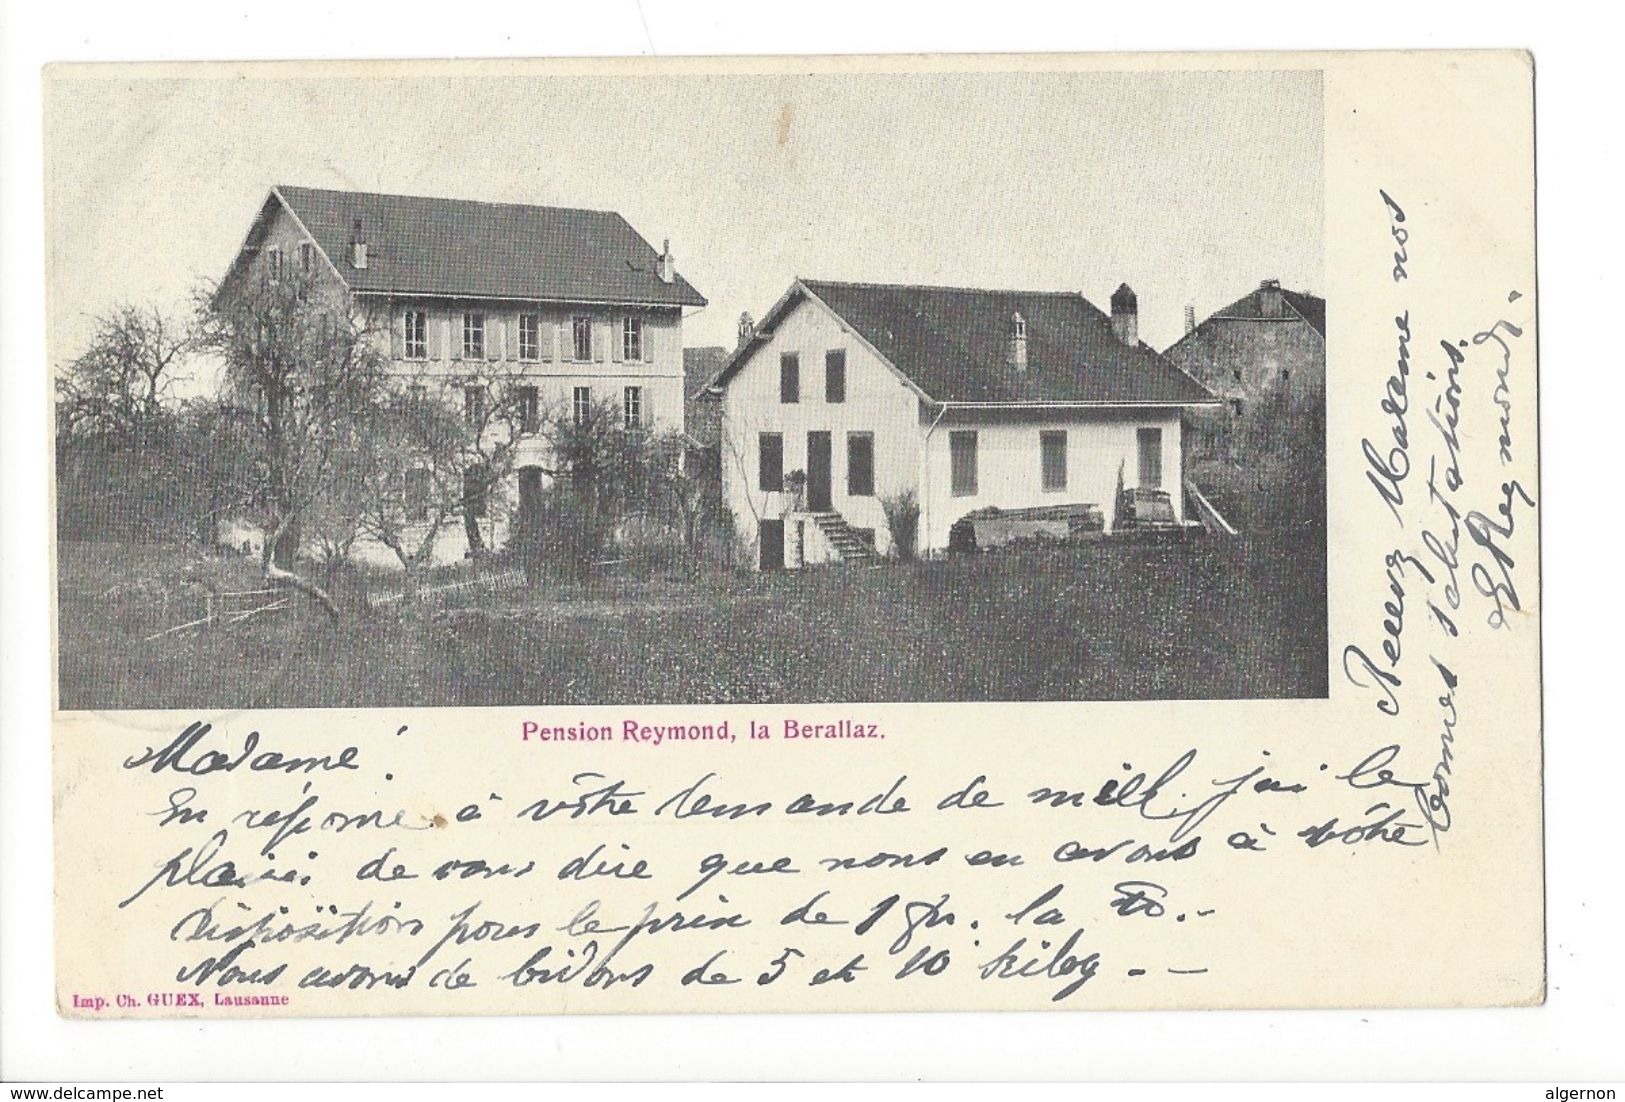 Pension Reymond, la Berallaz.
Madame!
En réponse à vôtre demande de miell. j'ai le
plaisir de vous dire que nous en avons à vôtre
disposition pour le prix de 1 fr. la ℔.-
Nous avons de bidons de 5 et 10 kilog - -
Recevez Madame nos
bonnes salutations.
E Reymond.
Imp. Ch. GUEX, Lausanne
www.delcampe.net
algernon